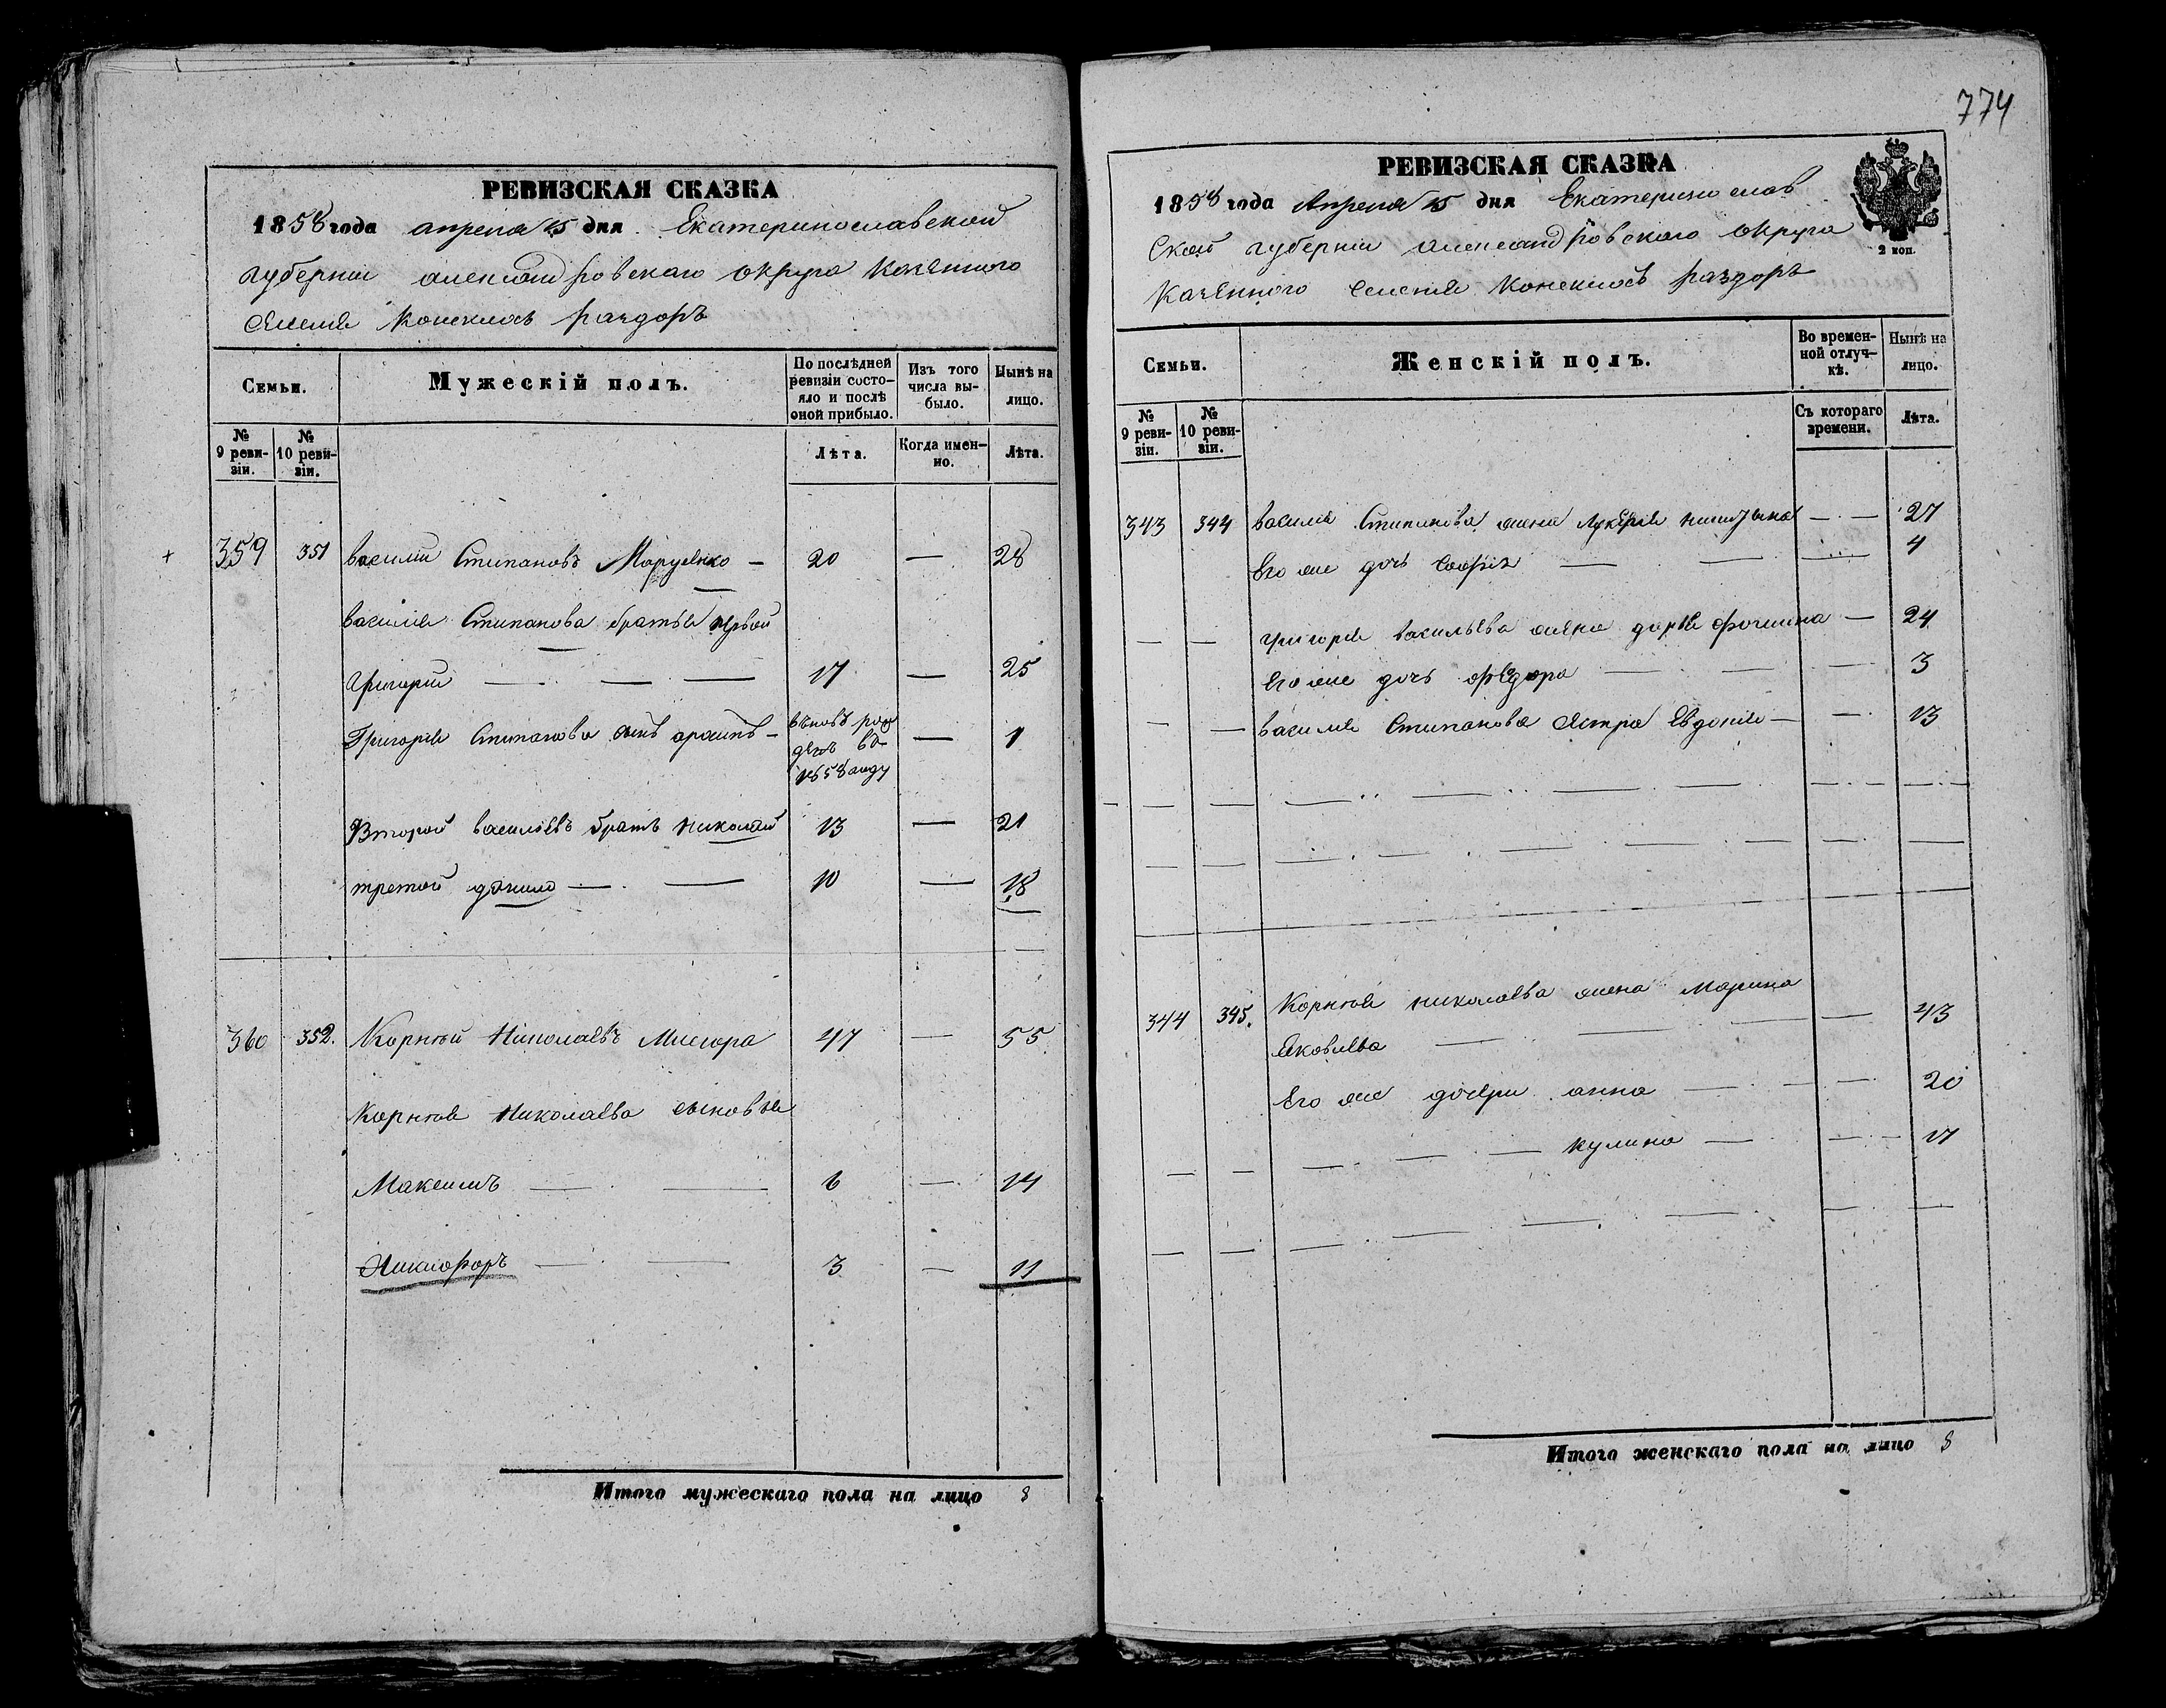 774
РЕВИЗСКАЯ СКАЗКА
1858 года апреля 15 дня Екатеринославской
губернии александровскаго округа казенного
селения Конскихъ раздоръ
Семьи.
Мужескій полъ.
По послѣдней ревизіи состояло и послѣ оной прибыло.
Изъ того числа выбыло.
Нынѣ на лицо.
№ 9 ревизіи.
№ 10 ревизіи.
Лѣта.
Когда именно.
Лѣта.
359 351 василий Стипановъ Марусенко — 20 — 28
василия Стипанова братья первой
григорий — — — 17 — 25
Григория Стипанова сынъ — 1
1858 году
Второй василиевъ братъ николай 13 — 21
третой данило — — 10 — 18
360 352. Корнѣй Николаевъ 47 — 55
Корнѣя Николаева сыновья
Максимъ — — 6 — 14
Никифоръ — — 3 — 11
Итого мужескаго пола на лицо 8
РЕВИЗСКАЯ СКАЗКА
1858 года Апреля 15 дня Екатеринослав
ской губернии александровского округа
казенного селения Конскихъ раздоръ
2 коп.
Семьи.
Женскій полъ.
Во временной отлучкѣ.
Нынѣ на лицо.
№ 9 ревизіи.
№ 10 ревизіи.
Съ котораго времени.
Лѣта.
343 344 василия Стипанова жена лукерия — — 27
Его же дочь софия — — — 4
— — григория васильева жена дарья фомина — 24
Его же дочь федора — — — 3
— — василия Стипанова сестра Евдокия — — 13
344 345. Корнѣя николаева жена Марина
Яковлева — — — — 43
Его же дочери анна — — — 20
— — — — — кулина — — — 17
Итого женскаго пола на лицо 8